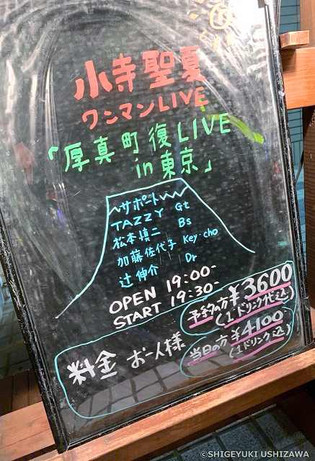 小寺聖夏
ワンマンLIVE
「厚真町復LIVE
in東京」
サポート
TAZZY Gt
松本慎二 Bs
加藤佐代子 Key・cho
辻伸介 Dr
OPEN 19:00-
START 19:30-
料金 お一人様
予約の方¥3600
(1ドリンク代込)
当日の方¥4100
(1ドリンク込)
©SHIGEYUKI USHIZAWA